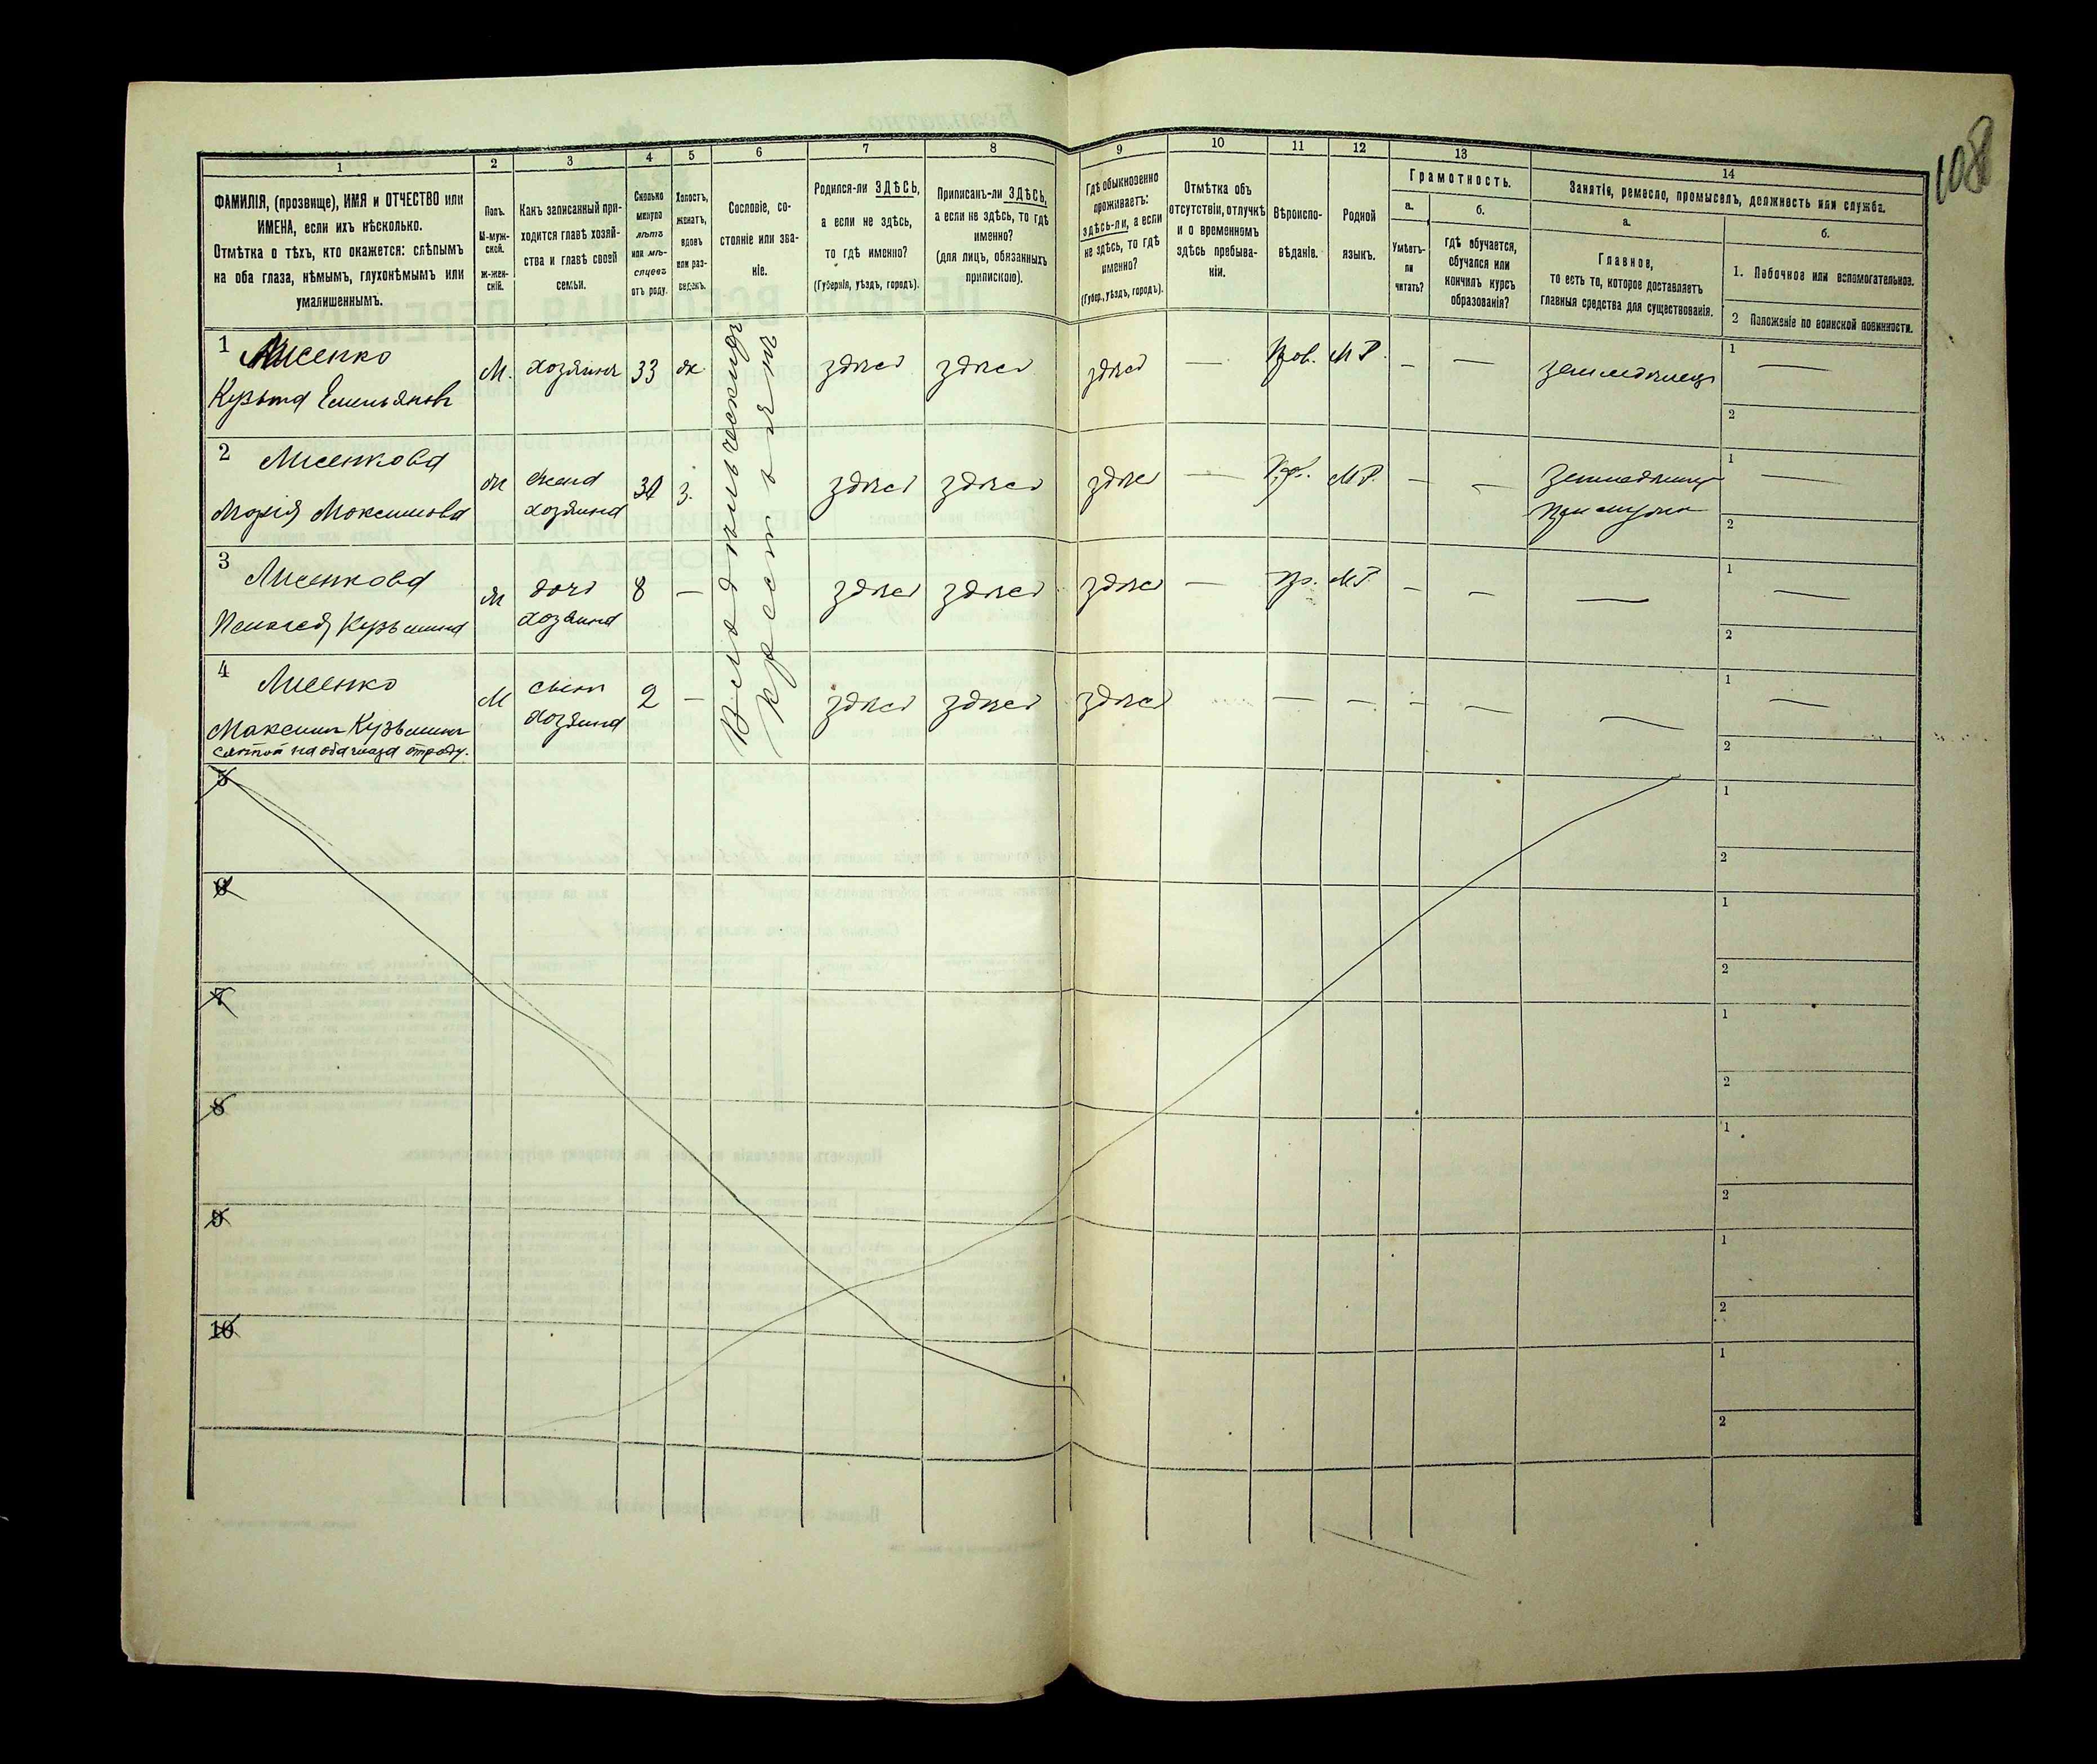 108
1
2
3
4
5
6
7
8
9
10
11
12
13
14
ФАМИЛІЯ, (прозвище), ИМЯ и ОТЧЕСТВО или
ИМЕНА, если ихъ нѣсколько.
Отмѣтка о тѣхъ, кто окажется: слѣпымъ
на оба глаза, нѣмымъ, глухонѣмымъ или
умалишеннымъ.
Полъ.
М-муж-
ской.
Ж-жен-
скій.
Какъ записанный при-
ходится главѣ хозяй-
ства и главѣ своей
семьи.
Сколько
минуло
лѣтъ
или мѣ-
сяцевъ
отъ роду.
Холостъ,
женатъ,
вдовъ
или раз-
веденъ.
Сословіе, со-
стояніе или зва-
ніе.
Родился-ли ЗДѢСЬ,
а если не здѣсь,
то гдѣ именно?
(Губернія, уѣздъ, городъ).
Приписанъ-ли ЗДѢСЬ,
а если не здѣсь, то гдѣ
именно?
(для лицъ, обязанныхъ
припискою).
Гдѣ обыкновенно
проживаетъ:
здѣсь-ли, а если
не здѣсь, то гдѣ
именно?
(Губер., уѣздъ, городъ).
Отмѣтка объ
отсутствіи, отлучкѣ
и о временномъ
здѣсь пребыва-
ніи.
Вѣроиспо-
вѣданіе.
Родной
языкъ.
Грамотность.
а.
Умѣетъ-
ли
читать?
б.
гдѣ обучается,
обучался или
кончилъ курсъ
образованія?
Занятіе, ремесло, промыселъ, должность или служба.
а.
Главное,
то есть то, которое доставляетъ
главныя средства для существованія.
б.
1. Побочное или вспомогательное.
2 Положеніе по воинской повинности.
1 Лисенко
Кузьма Емельяновъ
М. хозяинъ 33 ж здѣсь здѣсь здѣсь — Пров. МР. - — земледѣлецъ
1 —
2
2 Лисенкова
Марія Максимова
ж жена
хозяина
з. здѣсь здѣсь здѣсь — МР. - -
1 —
2
3 Лисенкова
Пелагея Кузьмина
ж дочь
хозяина
8 — здѣсь здѣсь здѣсь — Пр. МР. - - —
1 —
2
4 Лисенко
Максимъ Кузьминъ
слѣпой на оба глаза отроду.
М сынъ
хозяина
2 - здѣсь здѣсь здѣсь — - - — —
1 —
2
крестьянинъ
5
1
2
6
1
2
7
1
2
8
1
2
9
1
2
10
1
2